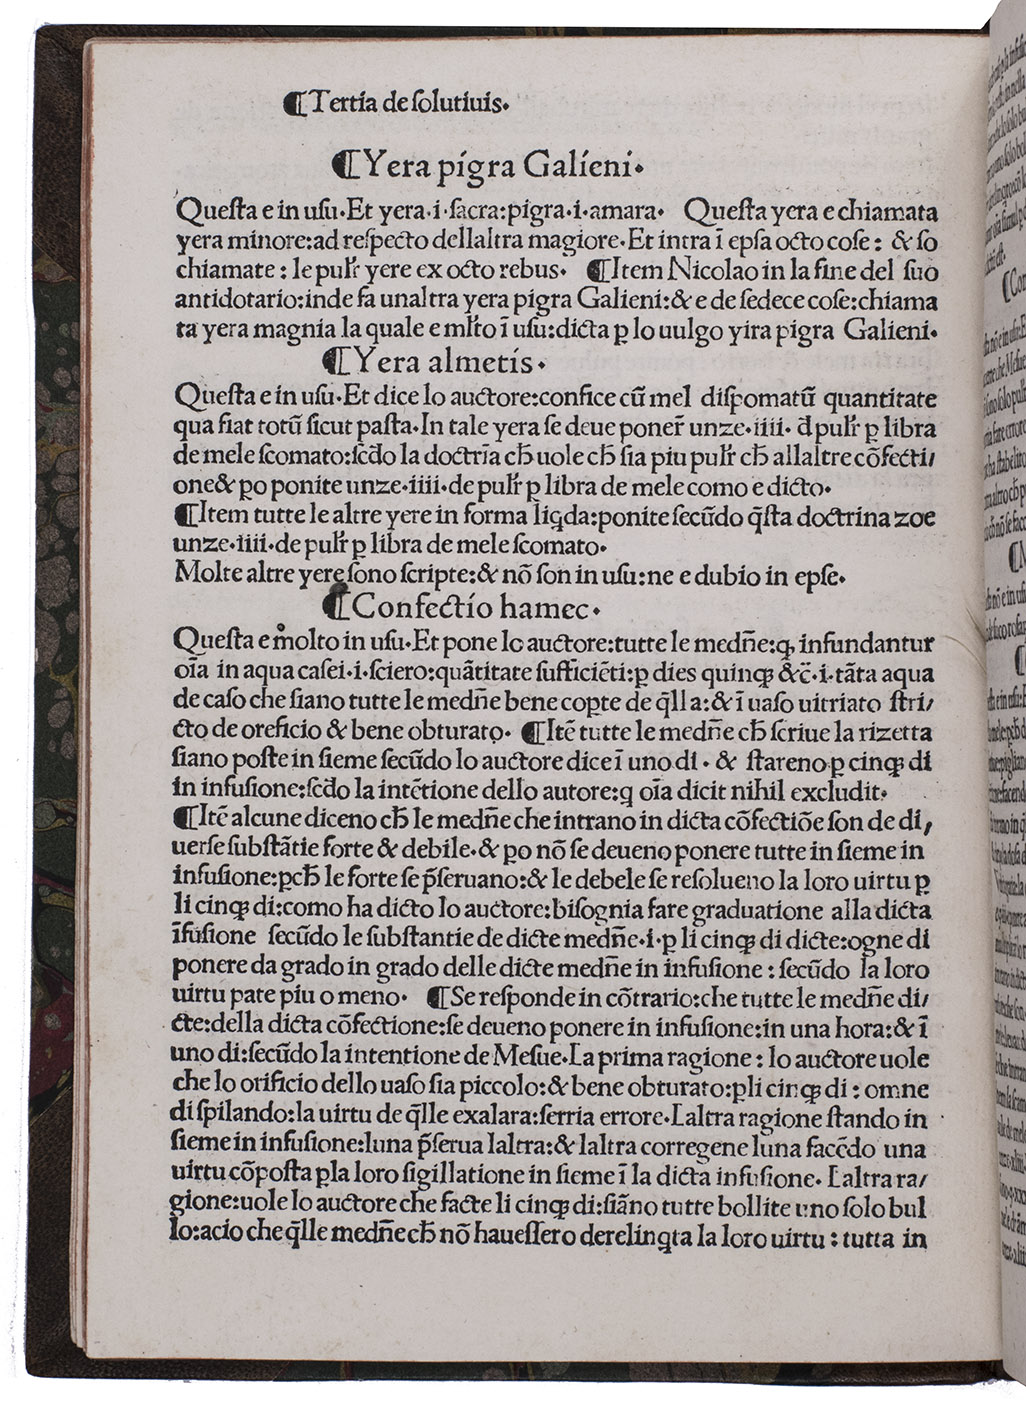 ⸿Tertia de ſolutiuis.
⸿Yera pigra Galieni.
Queſta e in uſu.Et yera.i.ſacra:pigra.i.amara. Queſta yera e chiamata
yera minore:ad reſpecto dellaltra magiore.Et intra ī epſa octo coſe: & ſo
chiamate: le pulꝛ yere ex octo rebus. ⸿Item Nicolao in la fine del ſuo
antidotario:inde fa unaltra yera pigra Galieni:& e de ſedece coſe:chiama
ta yera magnia la quale e mľto ī uſu:dicta ꝑ lo uulgo yira pigra Galieni.
⸿Yera almetis.
Queſta e in uſu.Et dice lo auctore:confice cū mel diſpomatū quantitate
qua fiat totū ſicut paſta.In tale yera ſe deue poner̄ unze.iiii. đ pulꝛ ꝑ libra
de mele ſcomato:ſc̄do la doctria cħ uole cħ ſia piu pulꝛ cħ allaltre cōfecti/
one& ꝑo ponite unze.iiii.de pulꝛ ꝑ libra de mele como e dicto.
⸿Item tutte le altre yere in forma liq̇da:ponite ſecūdo q̄ſta doctrina zoe
unze.iiii.de pulꝛ ꝑ libra de mele ſcomato.
Molte altre yere ſono ſcripte:& nō ſon in uſu:ne e dubio in epſe.
⸿Confectio hamec.
Queſta e molto in uſu.Et pone lo auctore:tutte le medn̄e:q̨ infundantur
oīa in aqua caſei.i.ſciero:quātitate ſufficiēti:ꝑ dies quinq̨ &c̄.i.tāta aqua
de caſo che ſiano tutte le medn̄e bene copꝑte de q̄lla:& ī uaſo uitriato ſtri/
cto de oreficio & bene obturato. ⸿Itē tutte le medn̄e cħ ſcriue la rizetta
ſiano poſte in ſieme ſecūdo lo auctore dice ī uno di. & ſtareno ꝑ cinq̨ di
in infuſione:ſc̄do la intētione dello autore:q oīa dicit nihil excludit.
⸿Itē alcune diceno cħ le medn̄e che intrano in dicta cōfectiōe ſon de di/
uerſe ſubſtātie forte & debile.& ꝑo nō ſe deueno ponere tutte in ſieme in
infuſione:ꝑcħ le forte ſe p̄ſeruano:& le debele ſe reſolueno la loro uirtu ꝑ
li cinq̨ di:como ha dicto lo auctore:biſognia fare graduatione alla dicta
īfuſione ſecūdo le ſubſtantie de dicte medn̄e.i.ꝑ li cinq̨ di dicte:ogne di
ponere da grado in grado delle dicte medn̄e in infuſione: ſecūdo la loro
uirtu pate piu o meno. ⸿Se reſponde in cōtrario:che tutte le medn̄e di/
cte:della dicta cōfectione:ſe deueno ponere in infuſione:in una hora:& ī
uno di:ſecūdo la intentione de Meſue.La prima ragione: lo auctore uole
che lo orificio dello uaſo ſia piccolo:& bene obturato:ꝑli cinq̨ di: omne
di ſpilando:la uirtu de q̄lle exalara:ſerria errore.Laltra ragione ſtando in
ſieme in infuſione:luna p̄ſerua laltra:& laltra corregene luna facēdo una
uirtu cōpoſta ꝑla loro ſigillatione in ſieme ī la dicta infuſione. Laltra ra/
gione:uole lo auctore che facte li cinq̨ di:ſiāno tutte bollite uno ſolo bul
lo:acio che q̄lle medn̄e cħ nō haueſſero derelinq̇ta la loro uirtu: tutta in